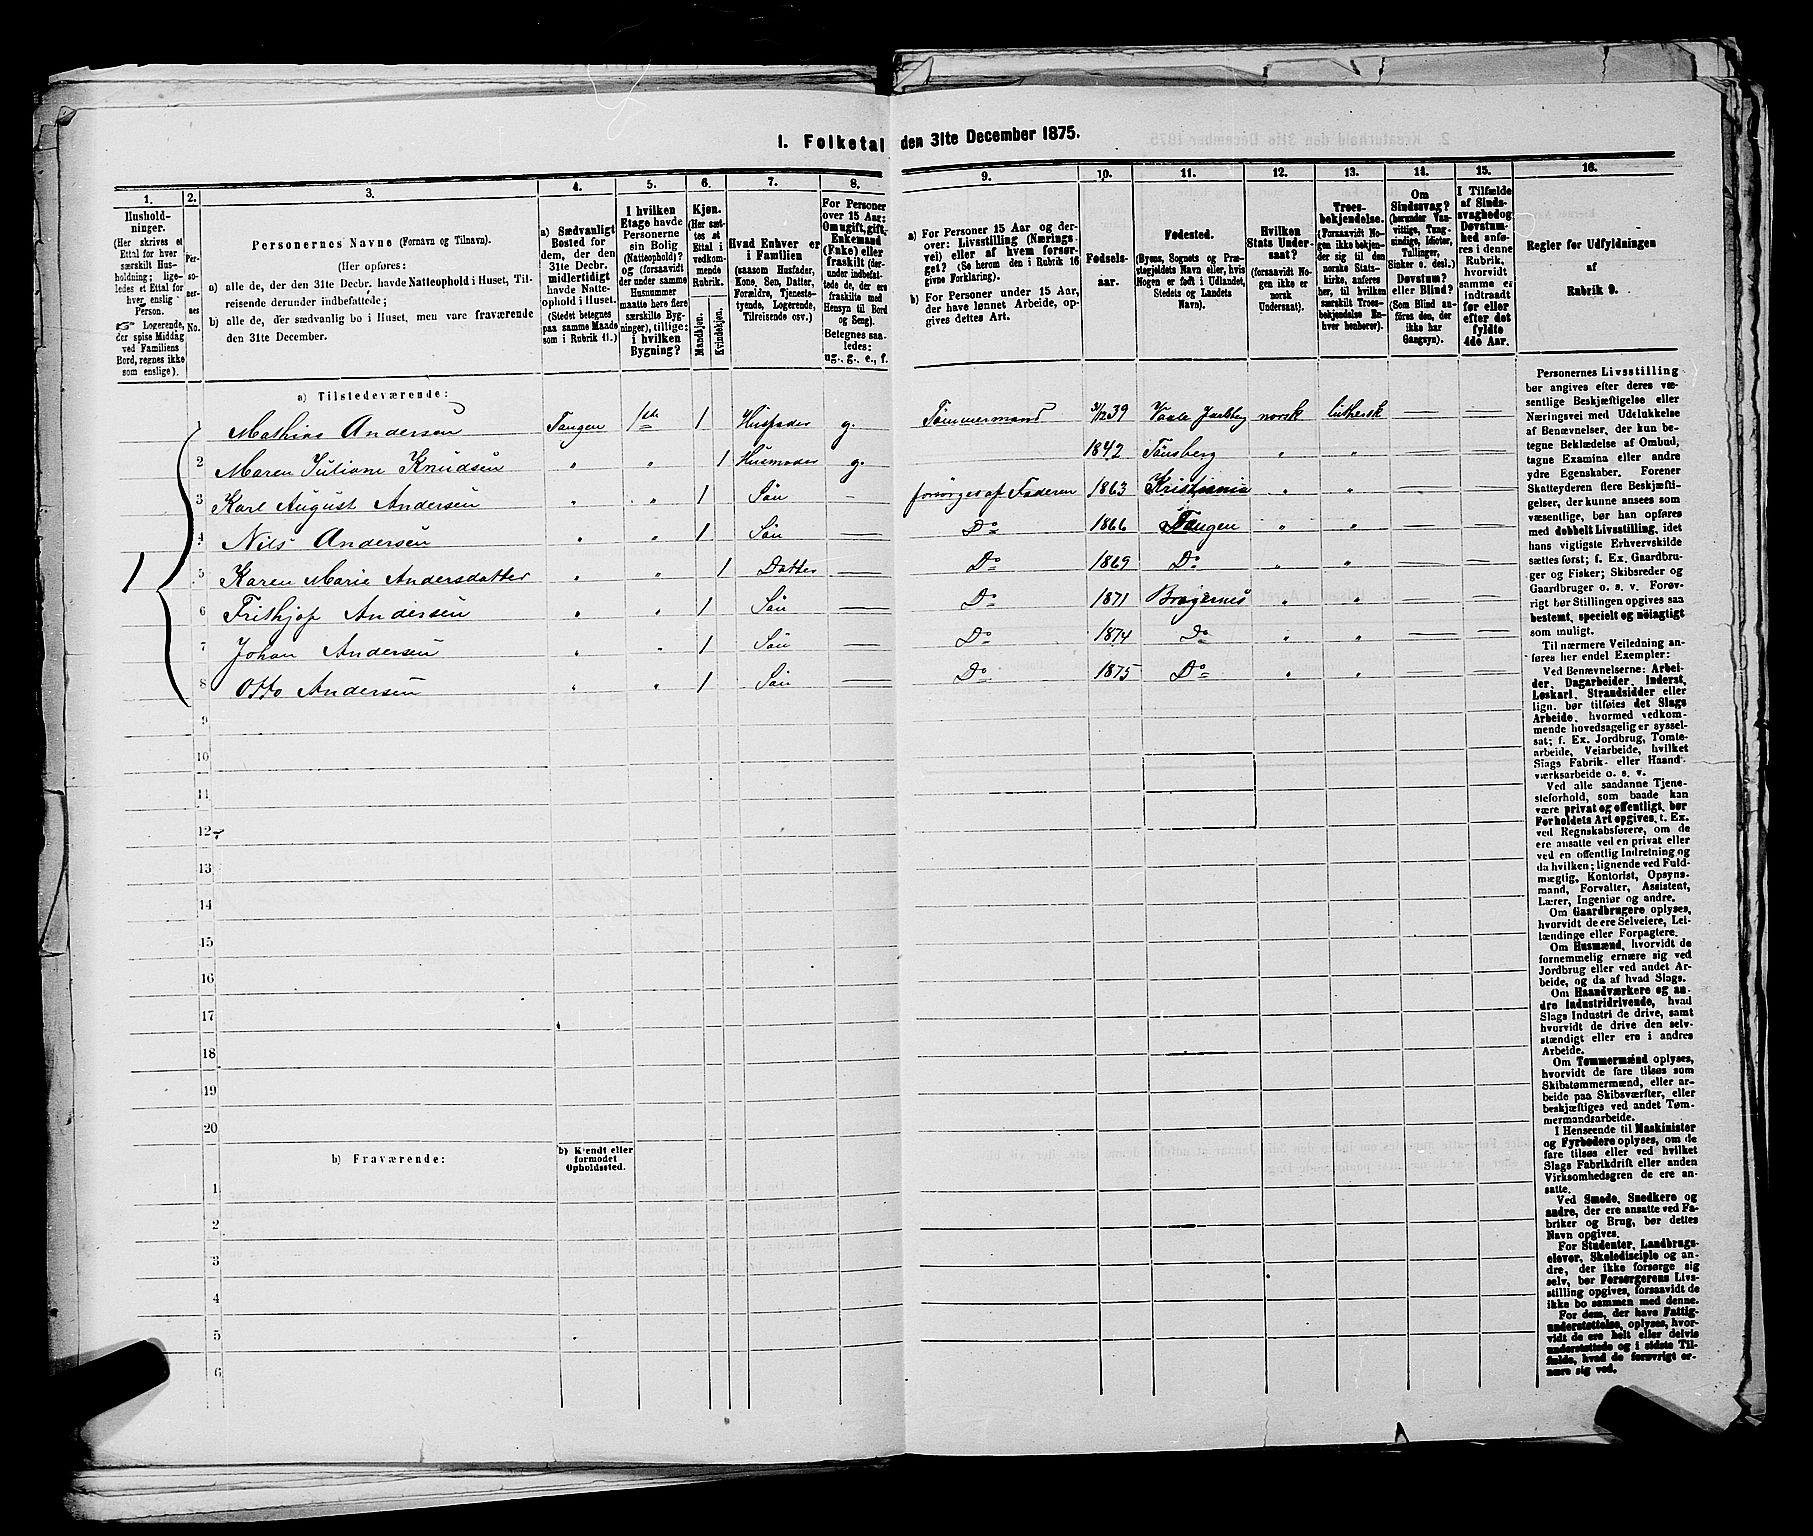 I. Folketal den 31te December 1875.
1. 2. 3. 4. 5. 6. 7. 8. 9. 10. 11. 12. 13. 14. 15. 16.
Hushold-
ninger.
(Her skrives et
Ettal for hver
særskilt Hus-
holdning; lige-
ledes et Ettal for
hver enslig
Person.
Logerende,
der spise Middag
ved Familiens
Bord, regnes ikke
som enslige).
Per-
so-
ner-
nes
No.
Personernes Navne (Fornavn og Tilnavn).
(Her opføres:
a) alle de, der den 31te Decbr. havde Natteophold i Huset, Til-
reisende derunder indbefattede;
b) alle de, der sædvanlig bo i Huset, men vare fraværende
den 31te December.
a) Sædvanligt
Bosted for
dem, der den
31te Decbr.
midlertidigt
havde Natte-
ophold i Huset.
(Stedet betegnes
paa samme Maade
som i Rubrik 11.)
I hvilken
Etage havde
Personerne
sin Bolig
(Natteophold)?
og (forsaavidt
der under samme
Husnummer
maatte høre flere
særskilte Byg-
ninger), tillige:
i hvilken
Bygning?
Kjøn.
(Her sæt-
tes et
Ettal i
vedkom-
mende
Rubrik.
Mandkjøn.
Kvindekjøn.
Hvad Enhver er
i Familien
(saasom Husfader,
Kone, Søn, Datter,
Forældre, Tjeneste-
tyende, Logerende,
Tilreisende osv.)
For Personer
over 15 Aar:
Om ugift, gift,
Enkemand
(Enke) eller
fraskilt (der-
under indbefat-
tede de, der ere
fraskilte med
Hensyn til Bord
og Seng).
Betegnes saa-
ledes:
ug., g., e., f.
a) For Personer 15 Aar og der-
over: Livsstilling (Nærings-
vei) eller af hvem forsør-
get? (Se herom den i Rubrik 16
givne Forklaring).
b) For Personer under 15 Aar,
der have lønnet Arbeide, op-
gives dettes Art.
Fødsels-
aar.
Fødested.
(Byens, Sognets og Præ-
stegjeldets Navn eller, hvis
Nogen er født i Udlandet,
Stedets og Landets
Navn).
Hvilken
Stats Under-
saat?
(forsaavidt No-
gen ikke er
norsk
Undersaat).
Troes-
bekjendelse.
(Forsaavidt No-
gen ikke bekjen-
der sig til den
norske Stats-
kirke, anføres
her, til hvilken
særskilt Troes-
bekjendelse En-
hver henhører).
Om
Sindssvag?
(herunder Van-
vittige, Tung-
sindige, Idioter,
Tullinger,
Sinker o. desl.)
Døvstum?
eller Blind?
(Som Blind an-
føres den, der
ikke har
Gangsyn).
I Tilfælde
af Sinds-
svaghed og
Døvstum-
hed anfø-
res i denne
Rubrik,
hvorvidt
samme er
indtraadt
før eller
efter det
fyldte
4de Aar.
Regler for Udfyldningen
af
Rubrik 9.
a) Tilstedeværende:
1 Mathias Andersen Tangen 1ste 1 Husfader g. Tømmermand 31/12 39 Vaale Jarlsberg norsk luthersk — —
2 Maren Juliane Knudsen " " 1 Husmoder g. 1842 Tønsberg " " — —
3 Karl August Andersen " " 1 Søn — forsørges af Faderen 1863 Kristiania " " — —
4 Nils Andersen " " 1 Søn — Do 1866 Tangen " " — —
1
5 Karen Marie Andersdatter " " 1 Datter — Do 1869 Do " " — —
6 Frithjof Andersen " " 1 Søn — Do 1871 Bragernes " " — —
7 Johan Andersen " " 1 Søn — Do 1874 Do " " — —
8 Otto Andersen " " 1 Søn — Do 1875 Do " " — —
9
10
11
12
13
14
15
16
17
18
19
20
b) Fraværende:
b) Kjendt eller
formodet
Opholdssted.
1
2
3
4
5
6
Personernes Livsstilling
bør angives efter deres væ-
sentlige Beskjæftigelse eller
Næringsvei med Udelukkelse
af Benævnelser, der kun be-
tegne Beklædelse af Ombud,
tagne Examina eller andre
ydre Egenskaber. Forener
Skatteyderen flere Beskjæfti-
gelser, der kunne ansees som
væsentlige, bør han opføres
med dobbelt Livsstilling, idet
hans vigtigste Erhvervskilde
sættes først; f. Ex. Gaardbru-
ger og Fisker; Skibsreder og
Gaardbruger o. s. v. Forøv-
rigt bør Stillingen opgives saa
bestemt, specielt og nøiagtigt
som muligt.
Til nærmere Veiledning an-
føres her endel Exempler:
Ved Benævnelserne: Arbei-
der, Dagarbeider, Inderst,
Løskarl, Strandsidder eller
lign. bør tilføies det Slags
Arbeide, hvormed vedkom-
mende hovedsagelig er syssel-
sat; f. Ex. Jordbrug, Tomte-
arbeide, Veiarbeide, hvilket
Slags Fabrik- eller Haand-
værksarbeide o. s. v.
Ved alle saadanne Tjene-
steforhold, som baade kan
være privat og offentligt, bør
Forholdets Art opgives, t. Ex.
ved Regnskabsførere, om de
ere ansatte ved en privat eller
ved en offentlig Indretning og
da hvilken; lignende ved Fuld-
mægtig, Kontorist, Opsyns-
mand, Forvalter, Assistent,
Lærer, Ingeniør og andre.
Om Gaardbrugere oplyses,
hvorvidt de ere Selveiere, Lei-
lændinge eller Forpagtere.
Om Husmænd, hvorvidt de
fornemmelig ernære sig ved
Jordbrug eller ved andet Ar-
beide, og da af hvad Slags.
Om Haandværkere og an-
dre Industridrivende, hvad
Slags Industri de drive, samt
hvorvidt de drive den selv-
stændigt eller ere i andres
Arbeide.
Om Tømmermænd oplyses,
hvorvidt de fare tilsøs som
Skibstømmermænd, eller ar-
beide paa Skibsværfter, eller
beskjæftiges ved andet Tøm-
mermandsarbeide.
I Henseende til Maskinister
og Fyrbødere oplyses, om de
fare tilsøs eller ved hvilket
Slags Fabrikdrift eller anden
Virksomhedsgren de ere an-
satte.
Ved Smede, Snedkere og
andre, der ere ansatte ved Fa-
briker og Brug, bør dettes
Navn opgives.
For Studenter, Landbrugs-
elever, Skoledisciple og an-
dre, der ikke forsørge sig
selv, bør Forsørgerens Livs-
stilling opgives, forsaavidt de
ikke bo sammen med denne.
For dem, der have Fattig-
understøttelse, oplyses, hvor-
vidt de ere helt eller delvis
understøttede og i sidste Til-
fælde, hvad de forøvrigt er-
nære sig ved.